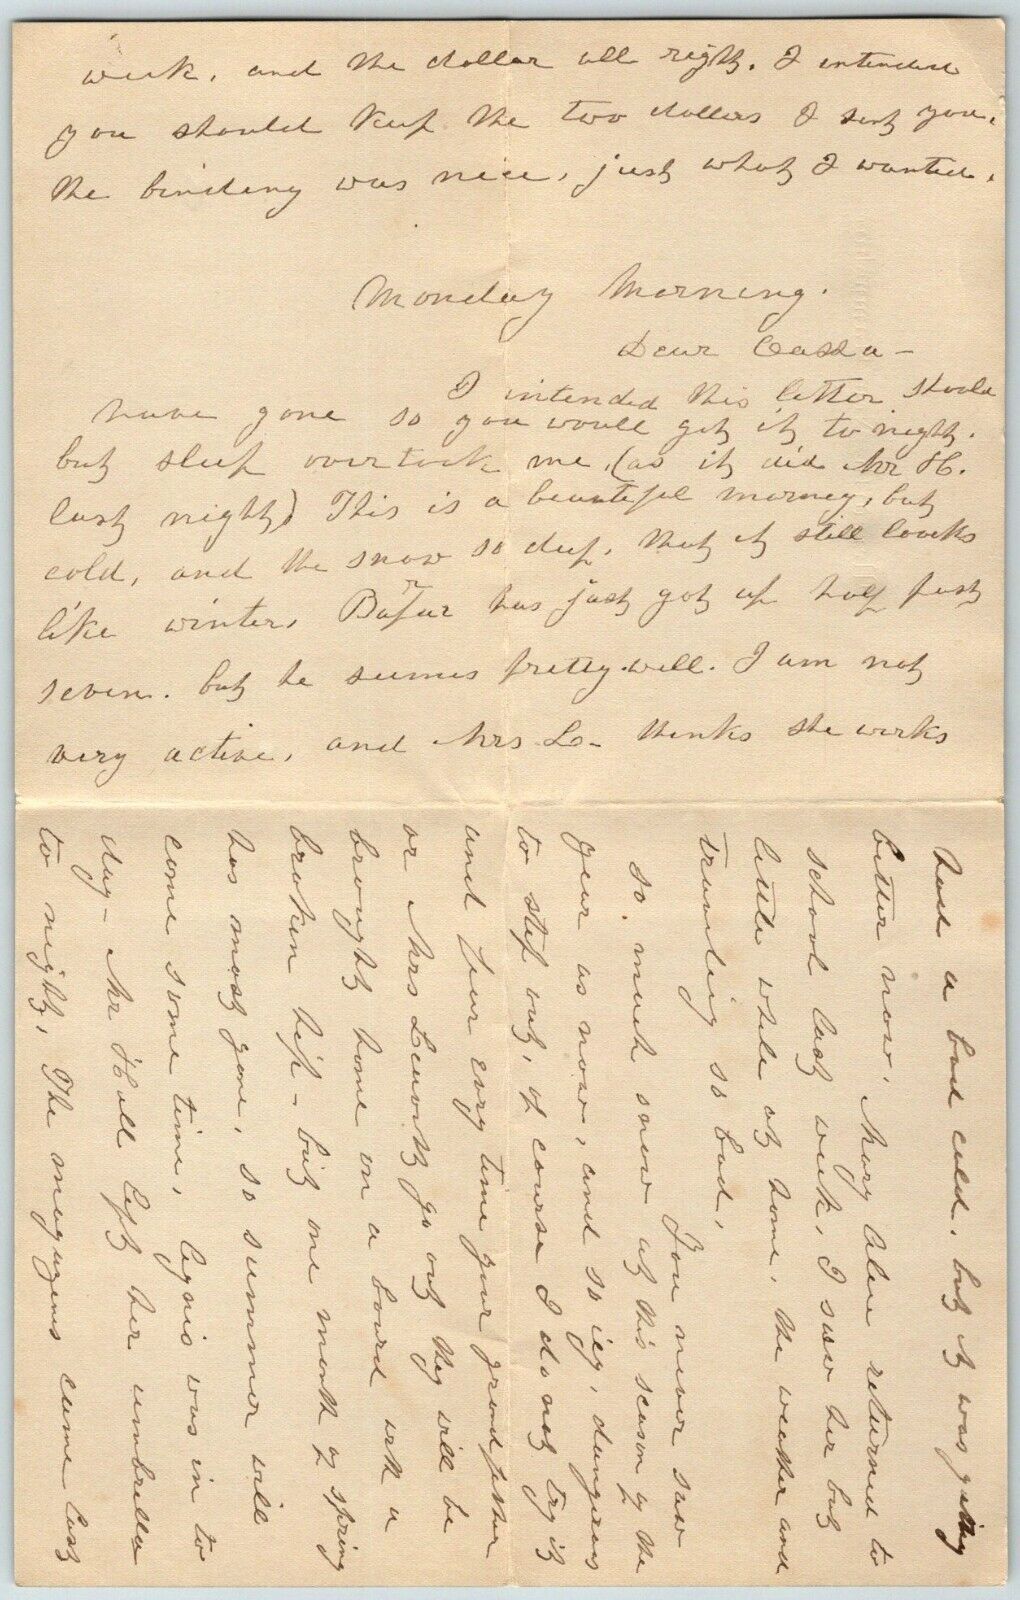 week, and the dollar all right. I intended
you should keep the two dollars I sent you.
the binding was nice, just what I wanted.
Monday Morning.
Dear Cassa -
I intended this letter should
have gone so you would get it to night.
but sleep overtook me, (as it did Mr H.
last night) This is a beautiful morning, but
cold, and the snow so deep, that it still looks
like winter. has just got up half past
seven. but he seems pretty well. I am not
very active, and Mrs L- thinks she works
had a bad cold, but it was getting
better now. Mary Alen returned to
school last week, I saw her but
little while at home, the weather and
traveling so bad,
You never saw
so much snow at this season of the
year as now, and so icy, dangerous
to step out, of course I do not try it
and fear evry time your grandfather
or Mrs go out they will be
brought home on a board with a
broken hip - but one month of spring
has most gone, so summer will
come some time, was in to
day - Mr Hall left her umbrella
to night, The magazens came last